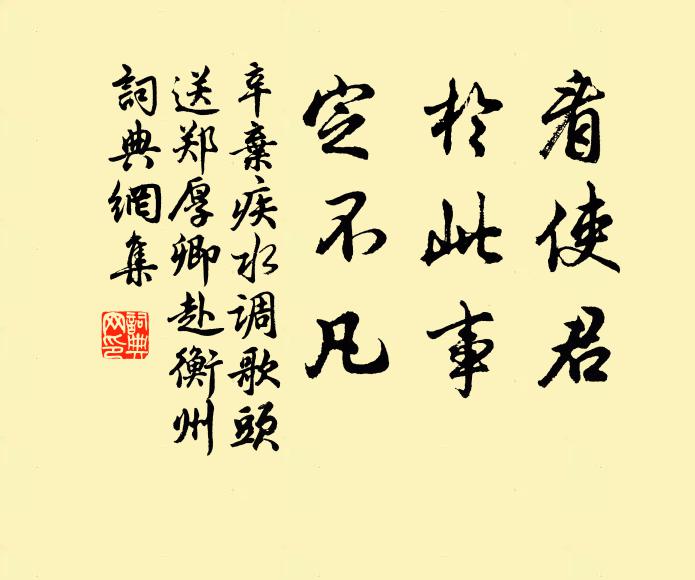 看使君
於此事
定不凡
辛棄疾水调歌頭
送郑厚卿赴衡州
詞典網集
詞典
网印